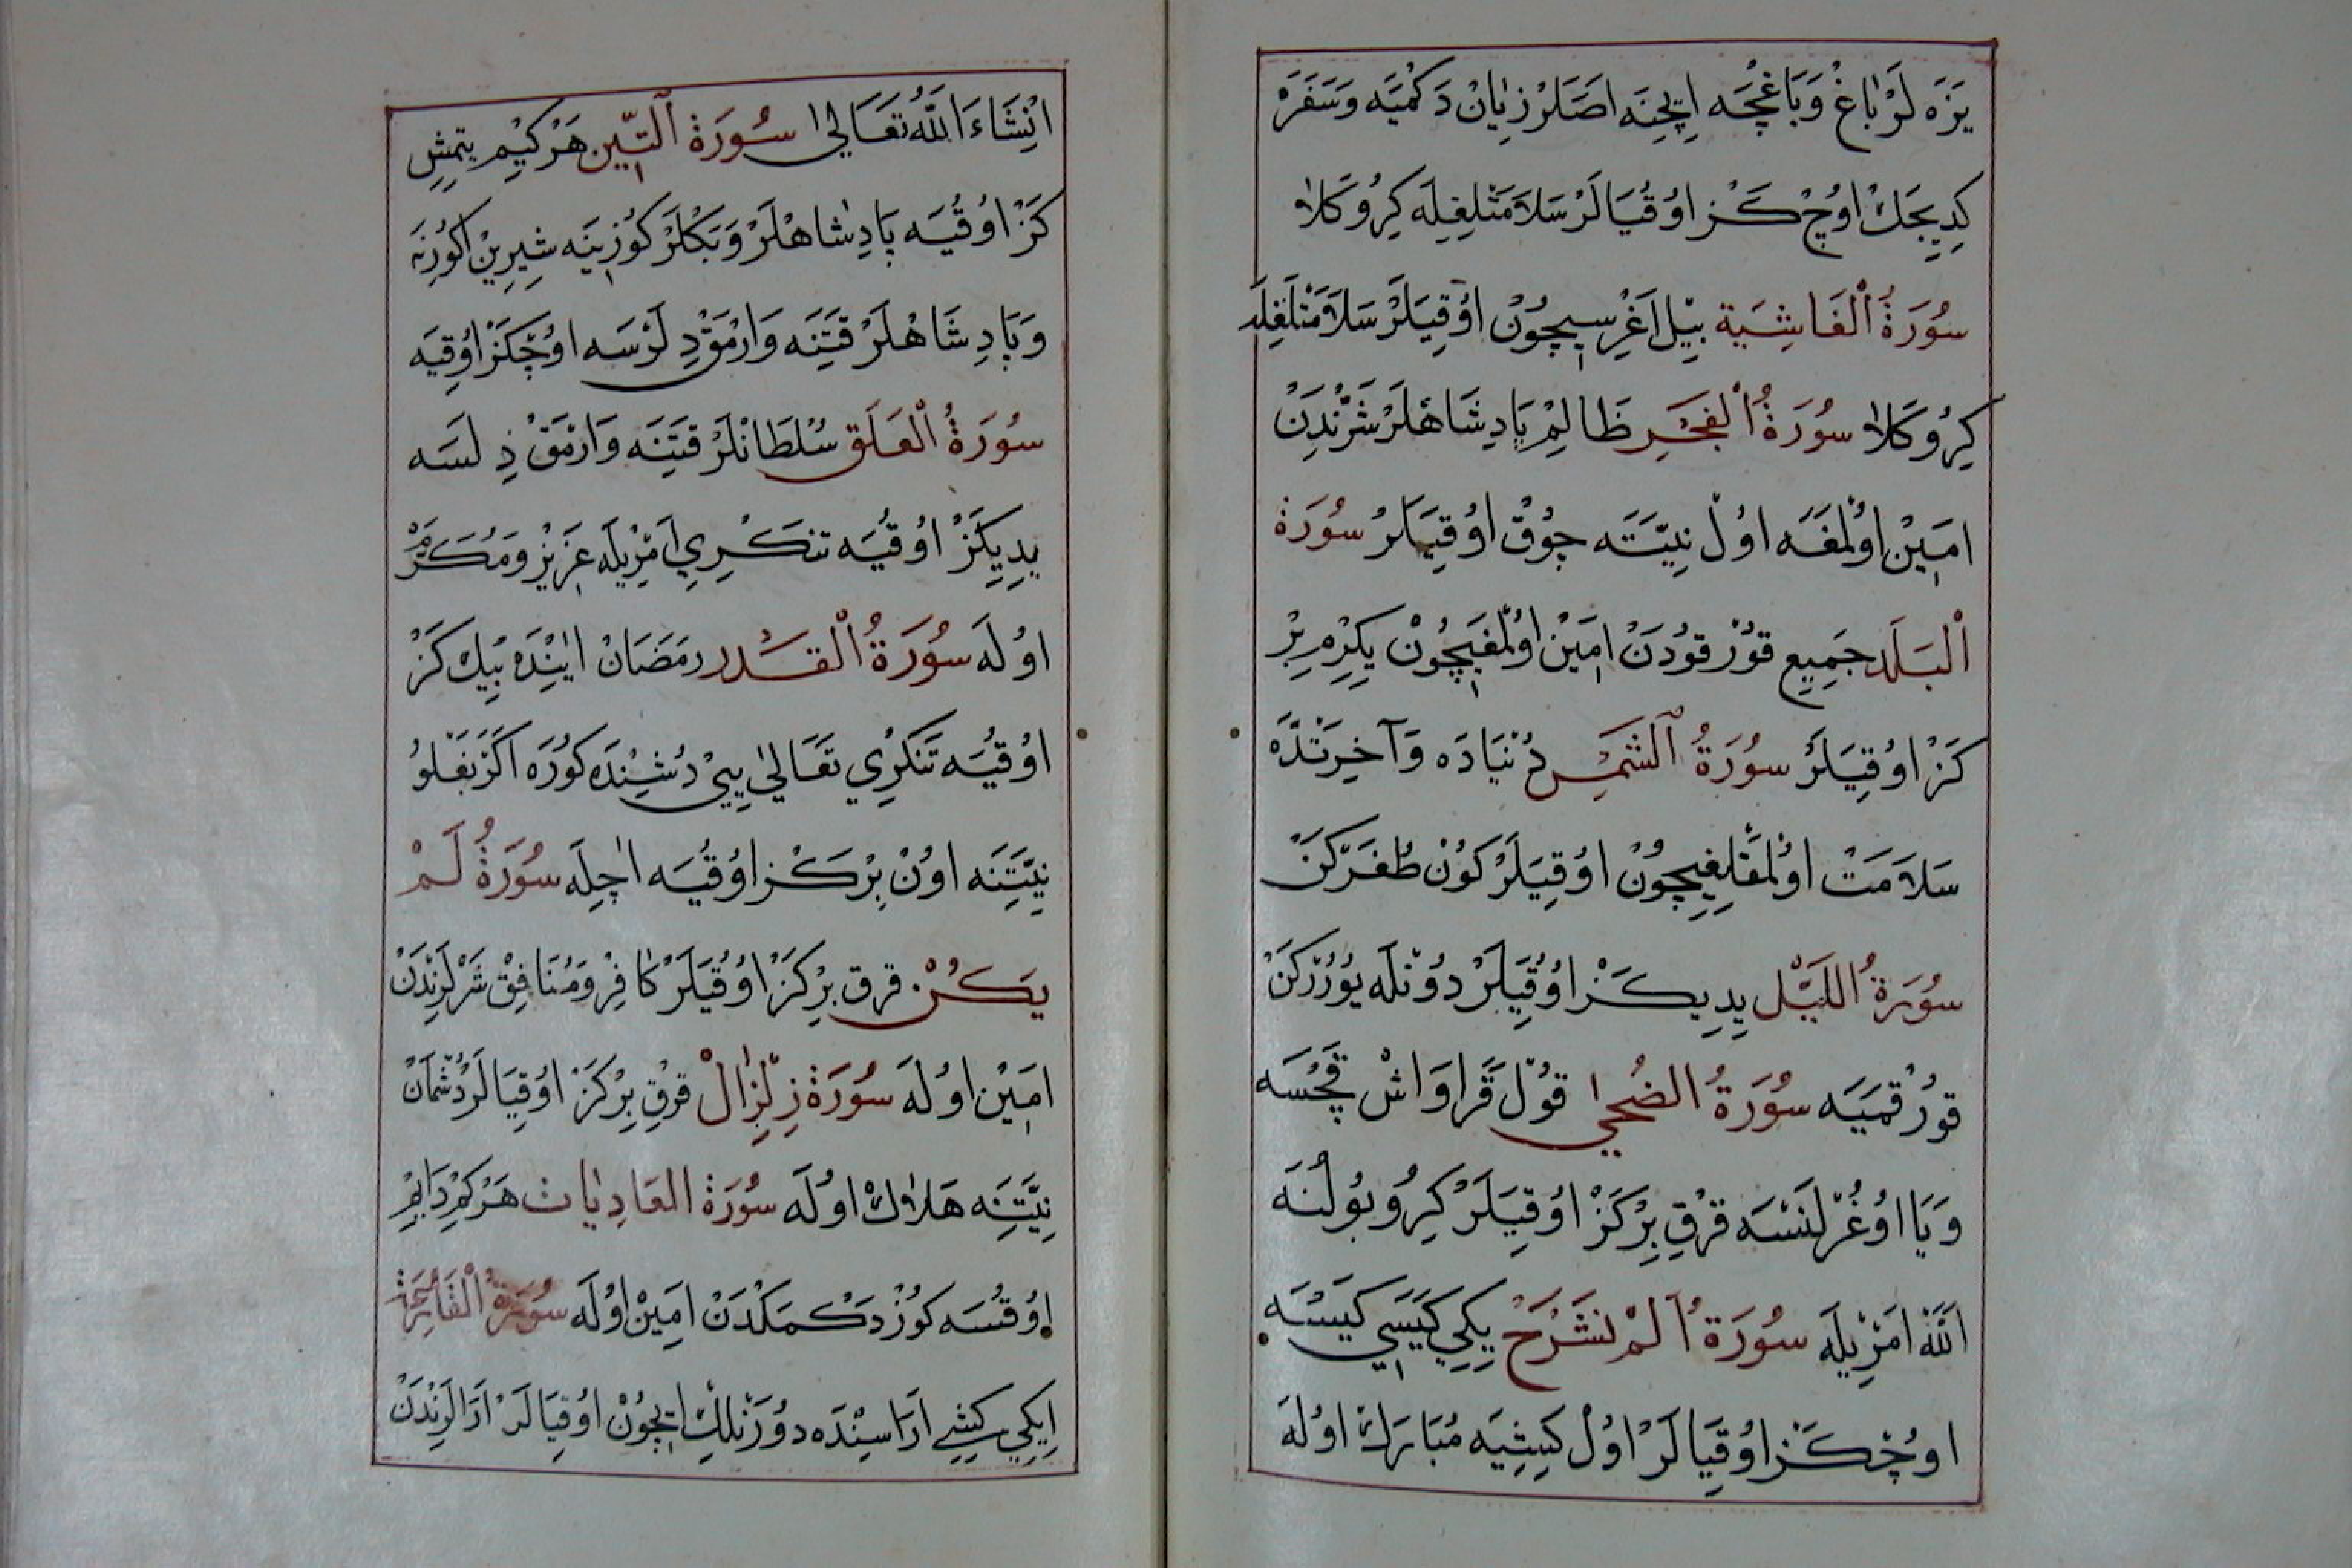 يَزَه لَرْ بَاغْ وَبَاغْچَه اِيچِنَه اَصَلَرْ زِيَانْ دَكْمَيَه وَسَفَرَه
كِدِيجَكْ اوُچْ كَزْ اوُقُيَالَرْ سَلاَمَتْلِغِلَه كِرُو كَلاَ
سُورَةُ الْغَاشِيَة بِيْل اَغْرِسِيچُونْ اوُقِيَلَرْ سَلاَمَتْلِغِلَه
كِرُو كَلاَ سُورَةُ الْفَجْرِ ظَالِمْ پَادِشَاهْلَرْ شَرِّنْدَنْ
اَمِينْ اوُلْمَغَه اوُلْ نِيَّتَه چُوقْ اوُقِيَالَرْ سُورَة
اَلْبَلَد جَمِيعِ قُورْقُودَنْ اَمِينْ اوُلْمَغِيچُونْ يِكِرْمِ بِرْ
كَزْ اوُقِيَلَرْ سُورَةُ الشَّمْسِ دُنْيَادَه وَآخِرَتْدَه
سَلاَمَتْ اوُلْمَقْلِغِيچُونْ اوُقِيَلَرْ كُونْ طُغَرْكَنْ
سُورَةُ اللَّيْل يِدِي كَزْ اوُقُيَلَرْ دُونْلَه يُورُرْكَنْ
قُورْقْمَيَه سُورَةُ الضُّحٰى قُولْ قَرَاوَاشْ قَچْسَه
وَيَا اوُغُرْلَنْسَه قِرْقِ بِرْ كَزْ اوُقِيَلَرْ كِرُو بُولُنَه
اَللّٰهْ اَمْرِيلَه سُورَةُ اَلَمْ نَشْرَحْ يِكِي كِيَسِي كِيَسَه
اوُچْ كَزْ اوُقِيَالَرْ اوُلْ كِشِيَه مُبَارَكْ اوُلَه
اِنْشَاءَ اللّٰهُ تَعَالٰى سُورَةُ التِّين هَرْ كِيمْ يِتْمِشِ
كَزْ اوُقُيَه پَادِشَاهْلَرْ وَبَكْلَرْ كُوزِينَه شِيرِينْ كُورُنَه
وَپَادِشَاهْلَرْ قَتِنَه وَارْمَقْ دِلَرْسَه اوُچْ كَزْ اوُقِيَه
سُورَةُ الْعَلَقِ سُلْطَانْلَرْ قَتِنَه وَارْمَقْ دِلَسَه
يِدِي كَزْ اوُقُيَه تنكرِي اَمْرِيلَه عَزِيزْ وَمُكَرَّمْ
اوُلَه سُورَةُ الْقَدر رَمَضَانْ اَيِنْدَه بِيكْ كَزْ
اوُقُيَه تَنْكرِي تَعَالٰى يِي دُشِنْدَه كُورَه اَكَرْ بَغْلُو
نِيَّتِنَه اوُنْ بِرْ كَزْ اوُقُيَه اَچِلَه سُورَةُ لَمْ
يَكُنْ قِرْقِ بِرْ كَزْ اوُقُيَلَرْ كَافِرْ وَمُنَافِقْ شَرْلَرِنْدَنْ
اَمِينْ اوُلَه سُورَةُ زِلْزَالْ قِرْقِ بِرْ كَزْ اوُقِيَالَرْ دُشْمَانْ
نِيَّتِنَه هَلاَكْ اوُلَه سُورَةُ العَادِيَات هَرْ كِمْ دَايِمْ
اوُقُسَه كُوزْ دَكْمَكْدَنْ اَمِينْ اوُلَه سُورَةُ الْقَارِعَة
اِيكِي كِشِي اَرَاسِنْدَه دُورَنْلِكْ اِيچُونْ اوُقِيَالَرْ اَرَالَرِنْدَنْ